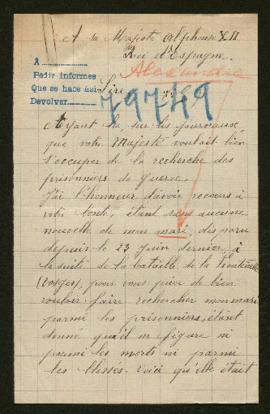 A sa Majesté Alphonse XII
Roi d'Espagne.
A
Pedir informes
Que se hace así
Devolver
Alexandrie
Sire
79749
Ayant lu, sur les journaux,
que votre Majesté voulait bien
s'occuper de la recherche des
prisonniers de Guerre.
J'ai l'honneur d'avoir recours à
votre bonté, étant sans aucune
nouvelle de mon mari, disparu
depuis le 23 Juin dernier, à
la suite de la bataille de la
(Vosges), pour vous prier de bien
vouloir faire rechercher mon mari
parmi les prisonniers, étant
donné qu'il ne figure ni
parmi les morts ni parmi
les blessés. Voici qu'elle était